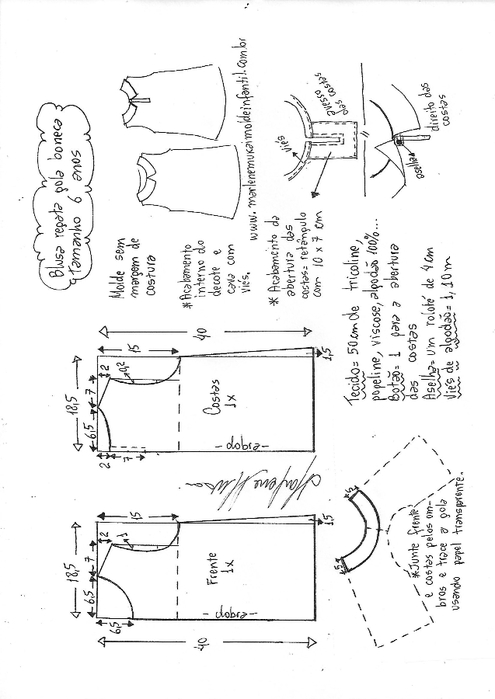 Blusa regata gola boneca
tamanho 6 anos
Molde sem
margem de
costura
*Acabamento
interno do
decote e
cava com
viés.
www.marlenemukaimoldeinfantil.com.br
* Acabamento da
abertura das
costas= retângulo
com 10 x 7 cm
viés
avesso
das costas
aselha
direito das
costas
Tecido= 50cm de tricoline,
popeline, viscose, algodão 100%...
Botão= 1 para a abertura
das costas
Aselha= um rolotê de 4cm
Viés de algodão= 1,10m
40
15
1,5
18,5
7
2
6,5
2
7
Costas
1x
-dobra-
40
15
1,5
18,5
7
2
6,5
6,5
Frente
1x
-dobra-
5
5
*Junte frente
e costas pelos om-
bros e trace a gola
usando papel transparente.